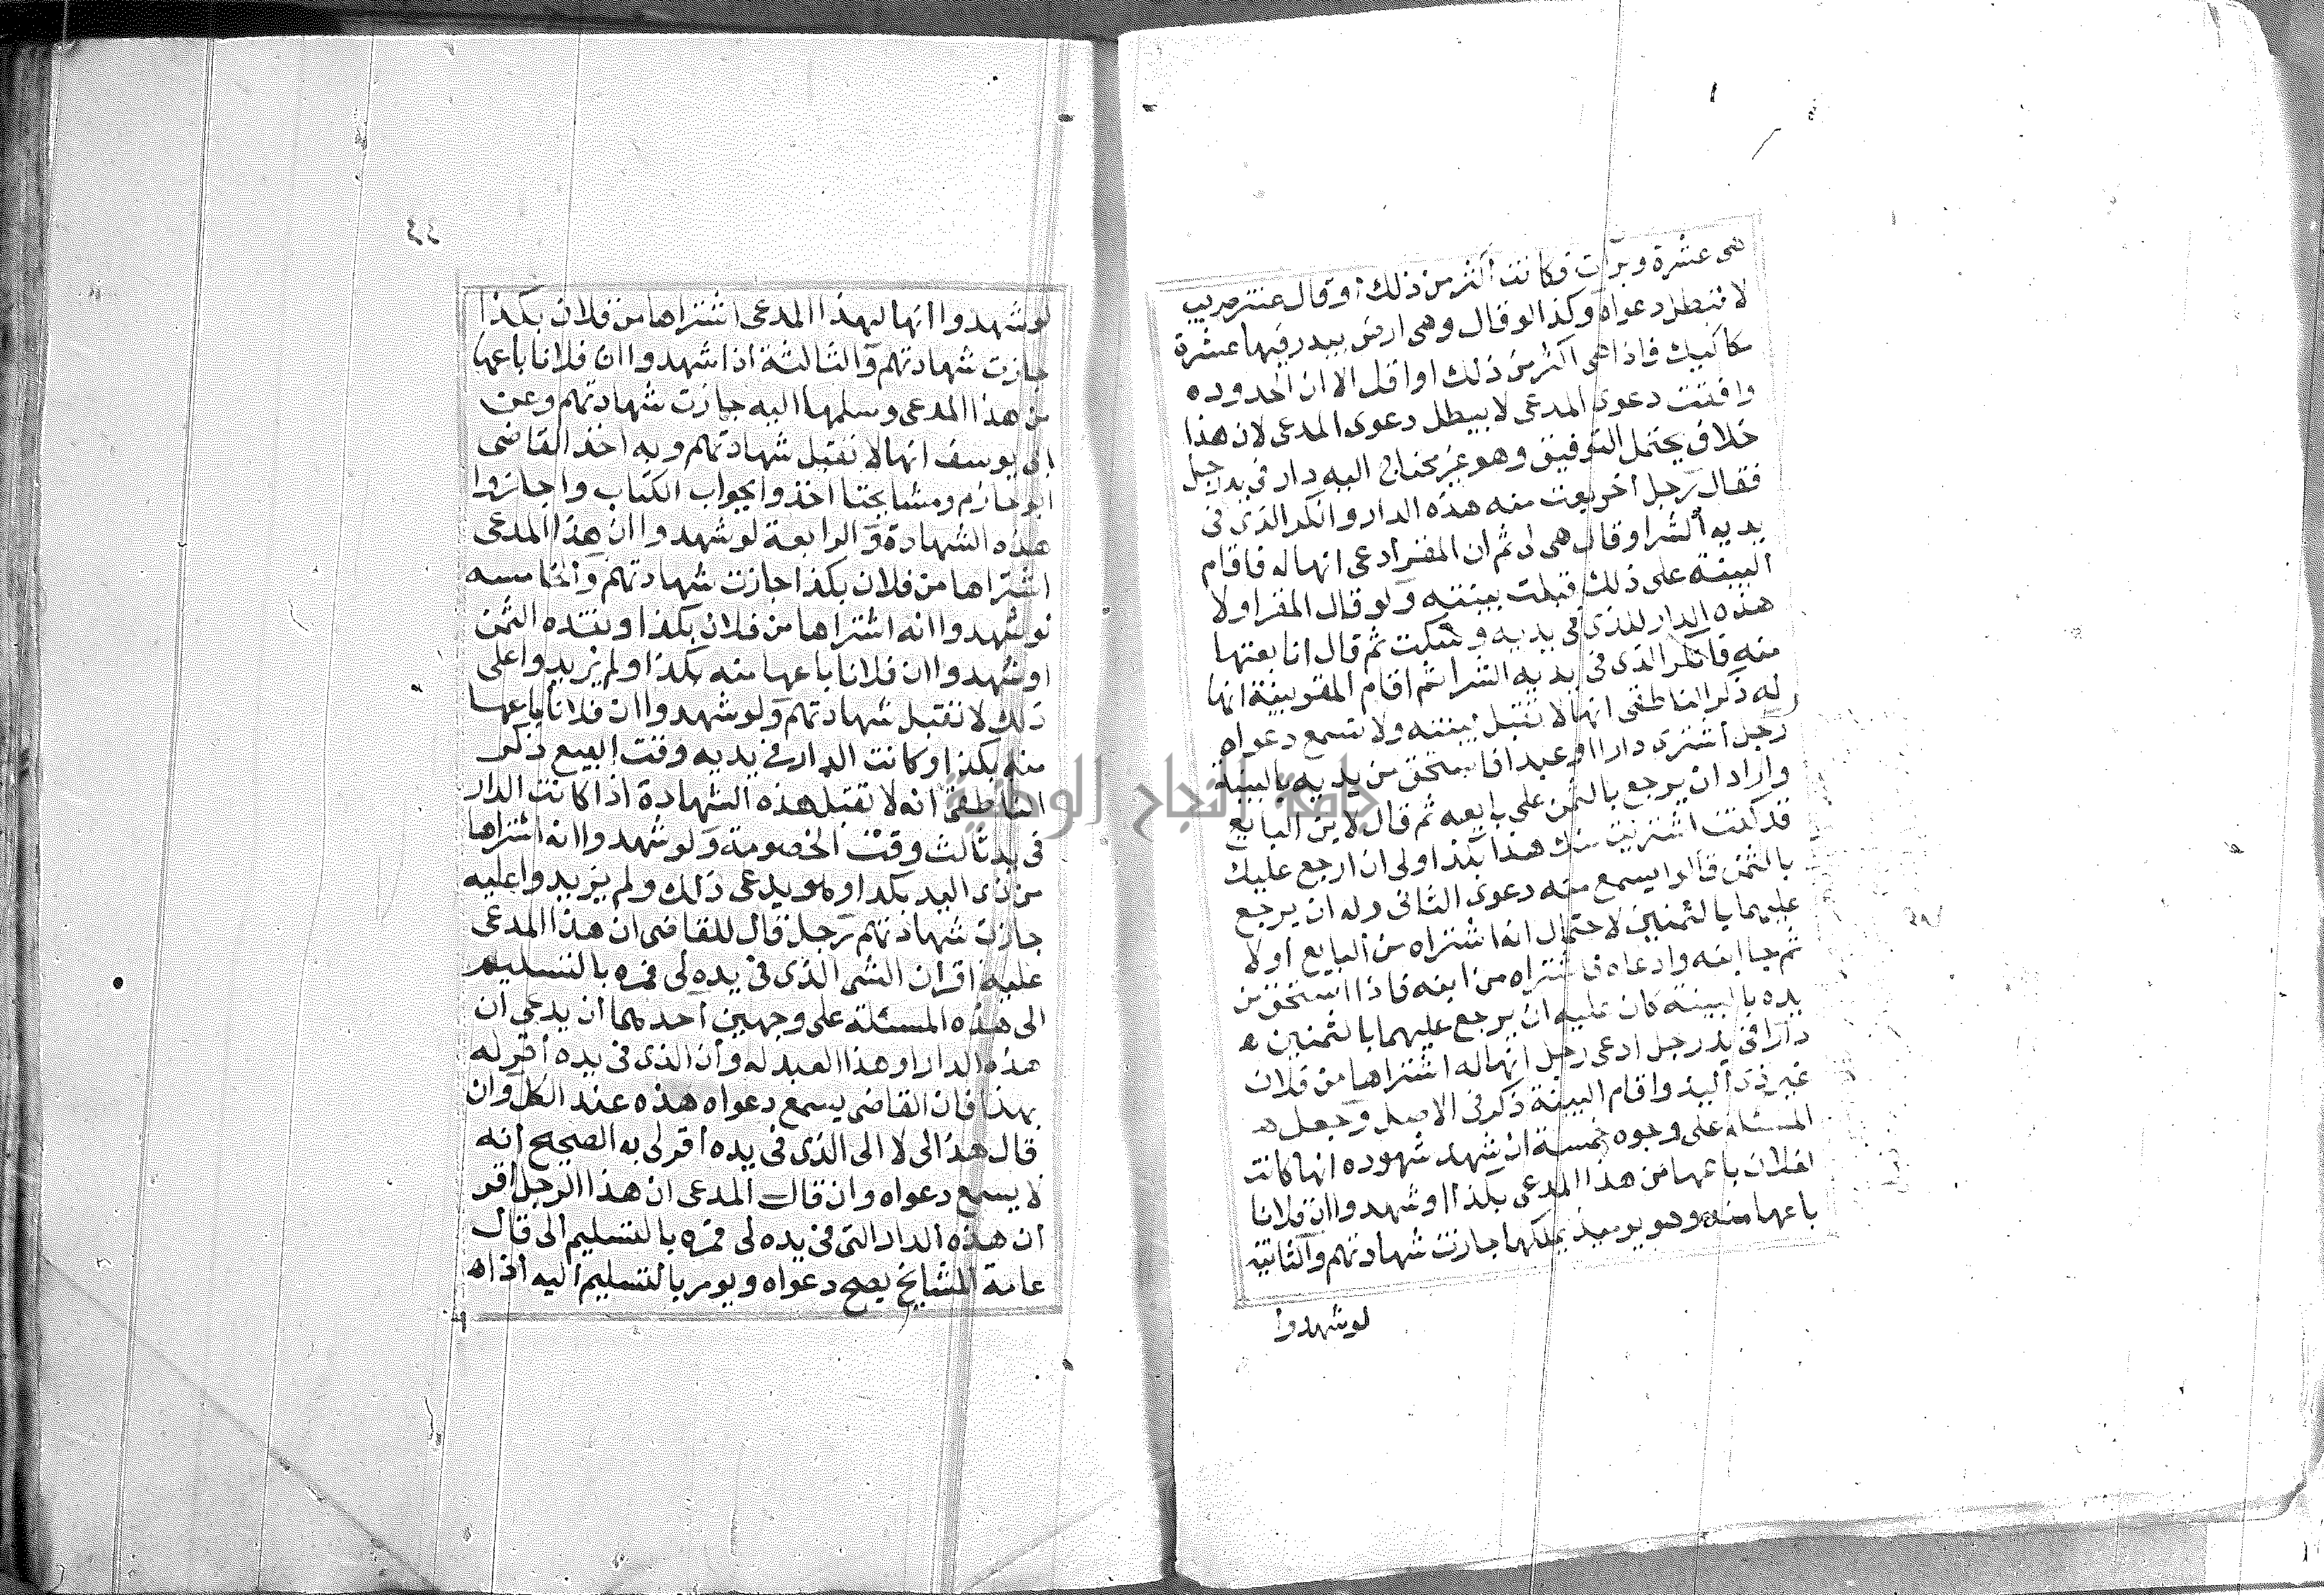 هى عشرة وبرات فكانت أكثر من ذلك أو قال عشر
لا تبطل دعواه وكذا لو قال وهى ارض بيدر فيها عشرة
مكاييك فاذا هى اكثر من ذلك او اقل الا ان الحدوده
وافقت دعوى المدعى لا يبطل دعوى المدعى لان هذا
خلاف يحتمل التوفيق وهو غير محتاج اليه دار فى يد رجل
فقال رجل آخر بعت منه هذه الدار وانكر الذى فى
يديه الشرا وقال هى لى ثم ان المقر أدعى انها له فاقام
البينة على ذلك قبلت بينته ولو قال المقر اولا
هذه الدار للذى فى يديه وسكت ثم قال انا بعتها
منه فانكر الذى فى يديه الشرا ثم اقام المقر بينة انها
له ذكر الناطفى انها لا تقبل بينته ولا تسمع دعواه
رجل أشترى دارا او عبدا فاستحق من يديه بالبينة
واراد ان يرجع بالثمن على بايعه ثم قال لابن البايع
قد كنت اشتريت منك هذا بكذا ولى ان ارجع عليك
بالثمن قالوا يسمع منه دعوى الثانى وله ان يرجع
عليهما بالثمنين لاحتمال انه اشتراه من البايع أولا
ثم جا ابنه وادعاه فاشتراه من ابنه فاذا استحق من
يده بالبينة كان عليه ان يرجع عليهما بالثمنين ه
دارا فى يد رجل ادعى رجل انها له اشتراها من فلان
غير ذى اليد واقام البينة ذكر فى الاصل وجعل هـ
المسئلة على وجوه خمسة ان شهد شهوده انها كانت
لفلان باعها من هذا المدعى بكذا او شهدوا ان فلانا
باعها منه وهو يوميذ يملكها جازت شهادتهم والثانية
لو شهدوا
لو شهدوا انها لهذا المدعى اشتراها من فلان بكذا
جازت شهادتهم والثالثة اذا شهدوا ان فلانا باعها
من هذا المدعى وسلمها اليه جازت شهادتهم وعن
ابى يوسف انها لا تقبل شهادتهم وبه اخذ القاضى
ابو حازم ومشايخنا اخذوا بجواب الكتاب واجازوا
هذه الشهادة والرابعة لو شهدوا ان هذا المدعى
اشتراها من فلان بكذا جازت شهادتهم والخامسه
لو شهدوا انه اشتراها من فلان بكذا ونقده الثمن
او شهدوا ان فلانا باعها منه بكذا ولم يزيدوا على
ذلك لا تقبل شهادتهم ولو شهدوا ان فلانا باعها
منه بكذا وكانت الدار فى يديه وقت البيع ذكر
الناطفى انه لا تقبل هذه الشهادة اذا كانت الدار
فى يد ثالث وقت الخصومة ولو شهدوا انه اشتراها
من ذى اليد بكذا وهو يدعى ذلك ولم يزيدوا عليه
جازت شهادتهم رجل قال للقاضى ان هذا المدعى
عليه اقر ان الشى الذى فى يده لى فمره بالتسليم
الى هذه المسئلة على وجهين أحدهما أن يدعى ان
هذه الدار او هذا العبد له وأن الذى فى يده أقر له
بهذا فان القاضى يسمع دعواه هذه عند الكل وان
قال هذا لى لا الى الذى فى يده أقر لى به الصحيح أنه
لا يسمع دعواه وان قال المدعى ان هذا الرجل اقر
أن هذه الدار التى فى يده لى فمره بالتسليم الى قال
عامة المشايخ يصح دعواه ويومر بالتسليم اليه اذا ه
جامعة النجاح الوطنية